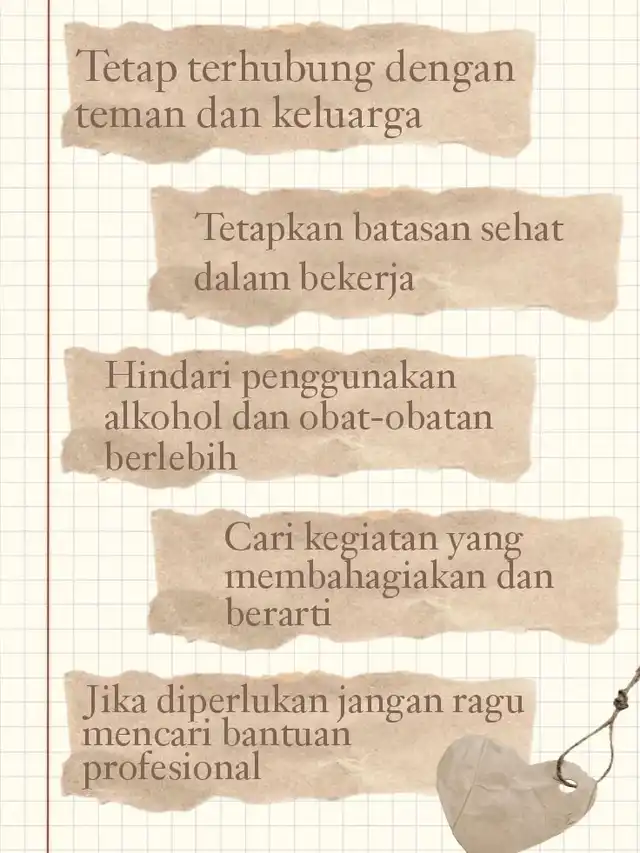 Tetap terhubung dengan
teman dan keluarga
Tetapkan batasan sehat
dalam bekerja
Hindari penggunakan
alkohol dan obat-obatan
berlebih
Cari kegiatan yang
membahagiakan dan
berarti
Jika diperlukan jangan ragu
mencari bantuan
profesional